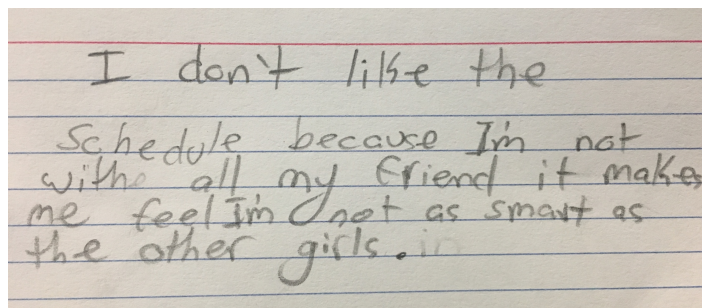 I don't like the
Schedule because I'm not
with all my friend it makes
me feel I'm not as smart as
the other girls. in